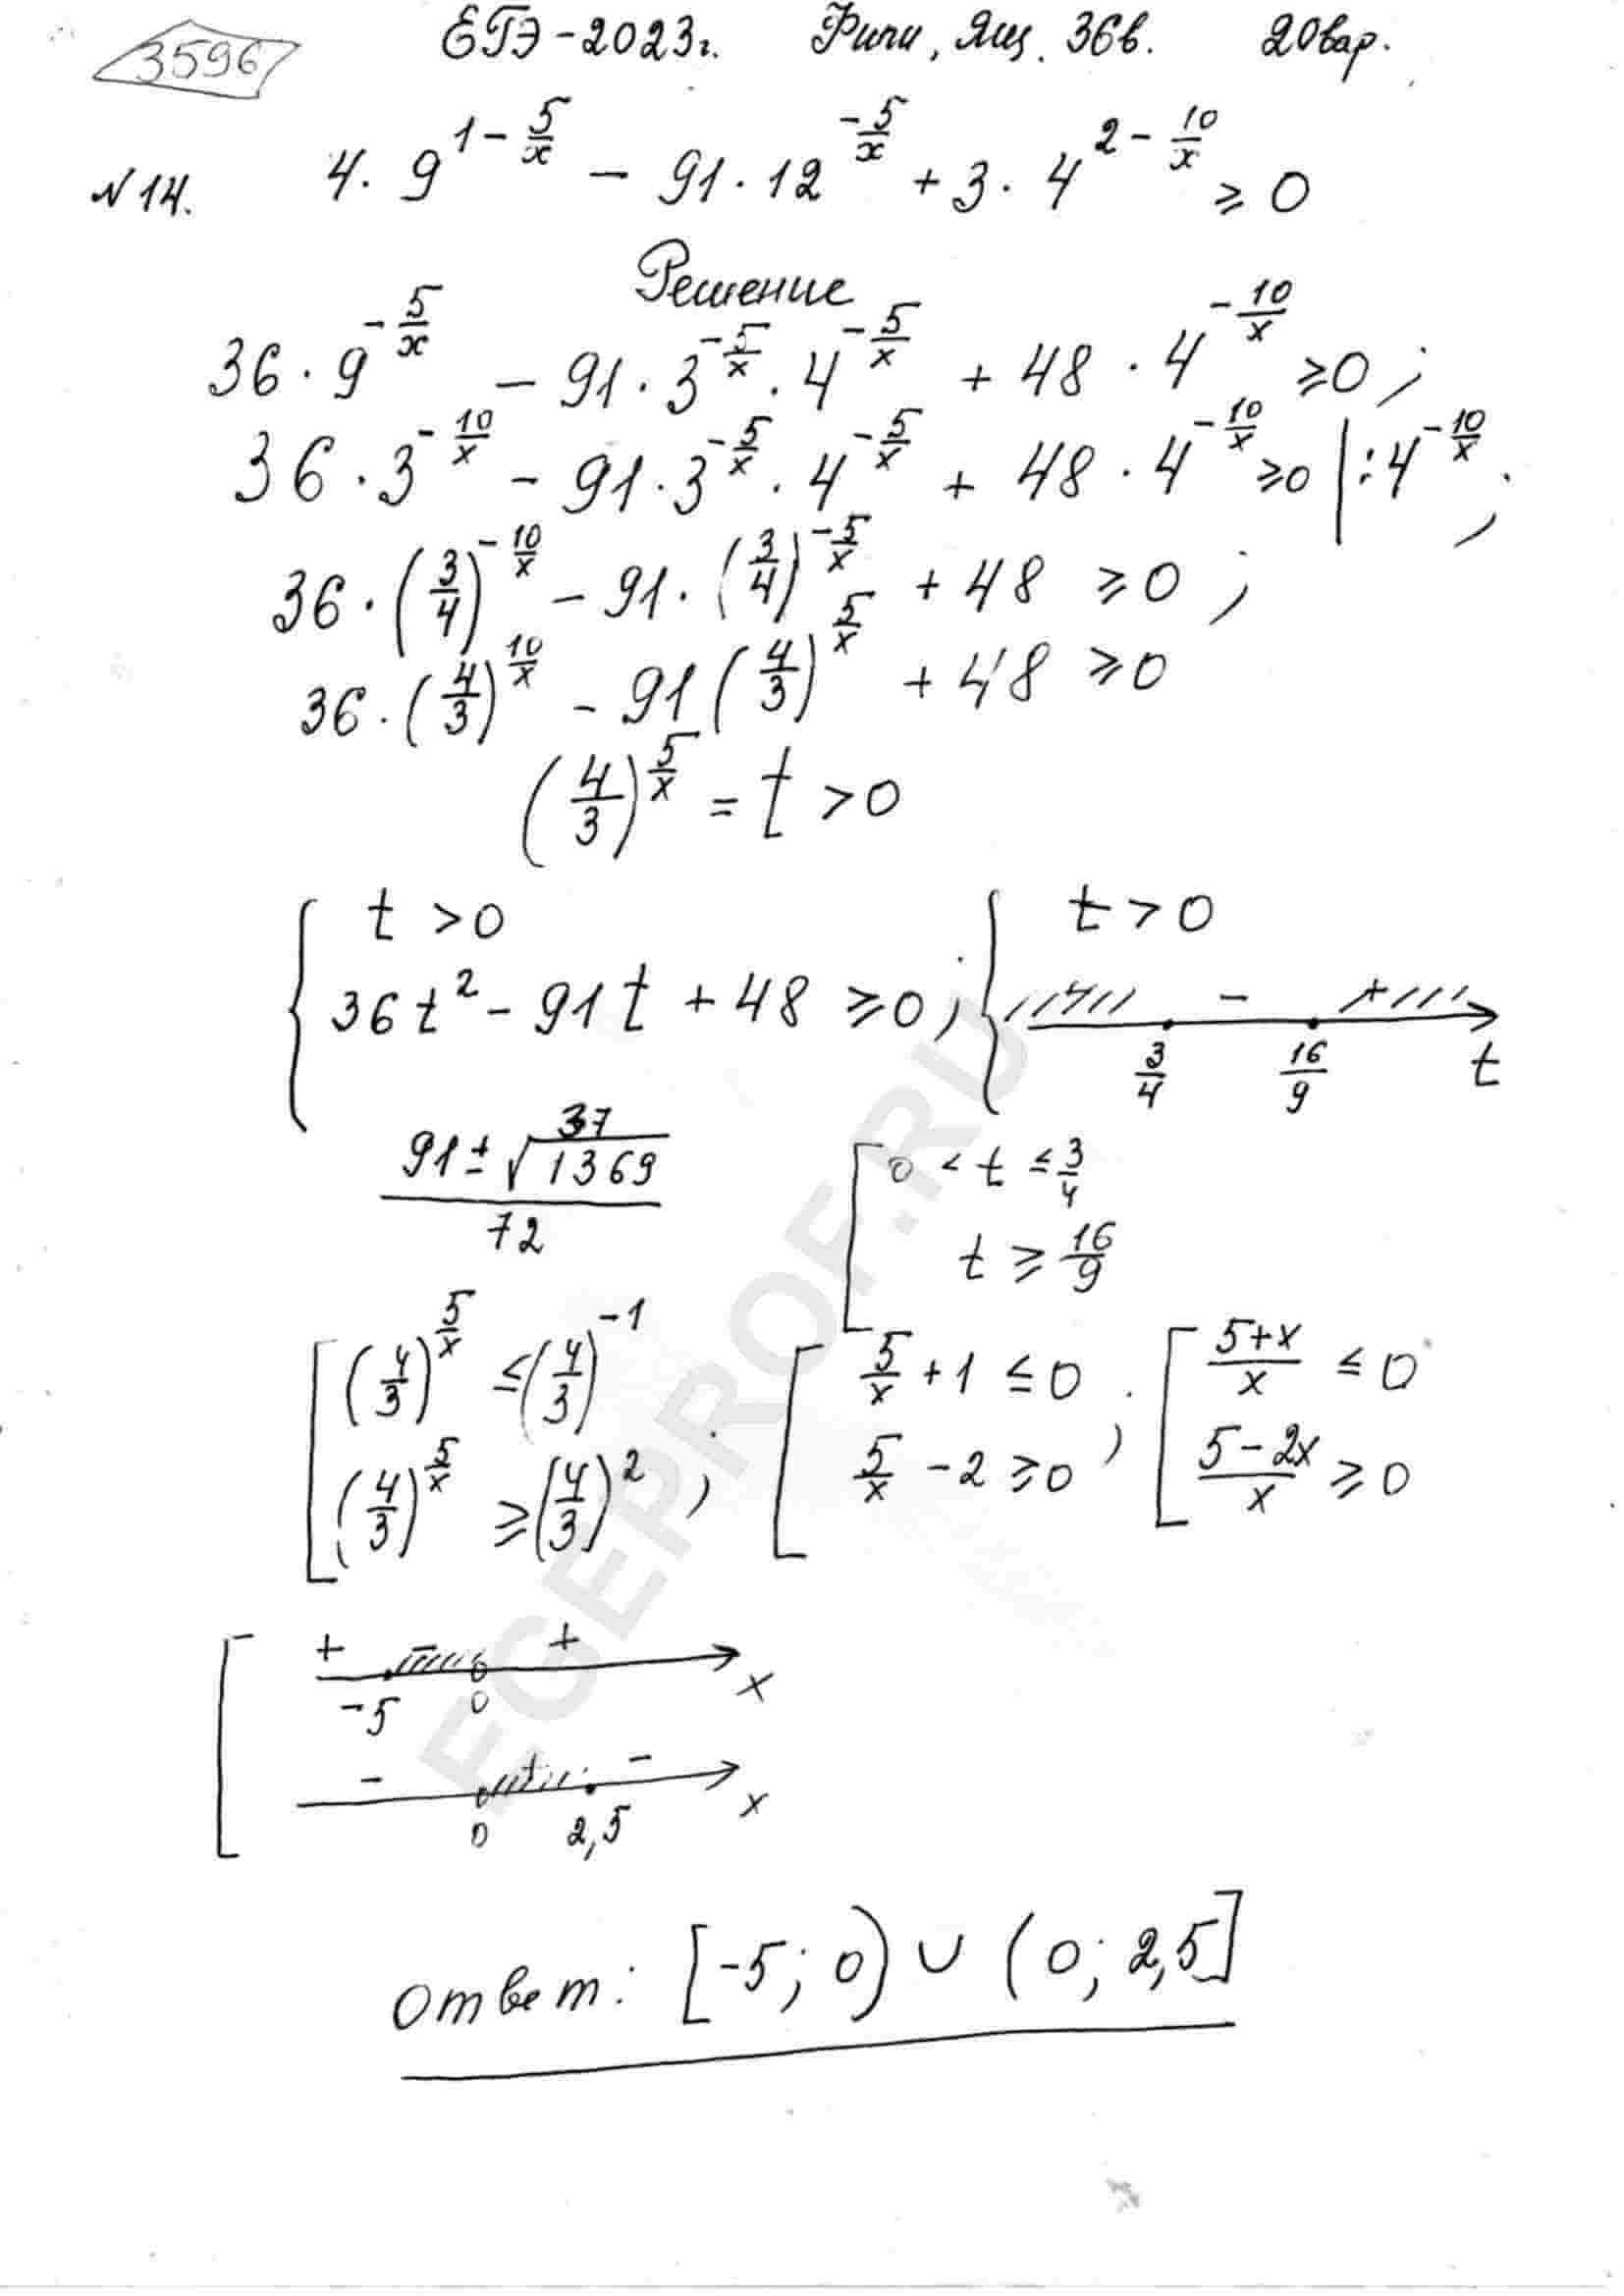 3596
ЕГЭ-2023г. Фипи, Ящ. 36в. 20вар.
№14. 4·9^(1-5/x) - 91·12^(-5/x) + 3·4^(2-10/x) ≥ 0
Решение
36·9^(-5/x) - 91·3^(-5/x)·4^(-5/x) + 48·4^(-10/x) ≥0;
36·3^(-10/x) - 91·3^(-5/x)·4^(-5/x) + 48·4^(-10/x) ≥0 |:4^(-10/x);
36·(3/4)^(-10/x) - 91·(3/4)^(-5/x) + 48 ≥0;
36·(4/3)^(10/x) - 91(4/3)^(5/x) + 48 ≥0
(4/3)^(5/x) = t >0
{ t >0
36t² - 91t + 48 ≥0;
{ t > 0
+ - +
3/4 16/9 t
37
(91±√1369)/72
[ 0 < t ≤ 3/4
t ≥ 16/9
[ (4/3)^(5/x) ≤ (4/3)^(-1)
(4/3)^(5/x) ≥ (4/3)^2;
[ 5/x + 1 ≤ 0
5/x - 2 ≥ 0;
[ (5+x)/x ≤ 0
(5-2x)/x ≥ 0
[ + - +
-5 0 x
- + -
0 2,5 x
Ответ: [-5; 0) ∪ (0; 2,5]
EGEPROF.RU